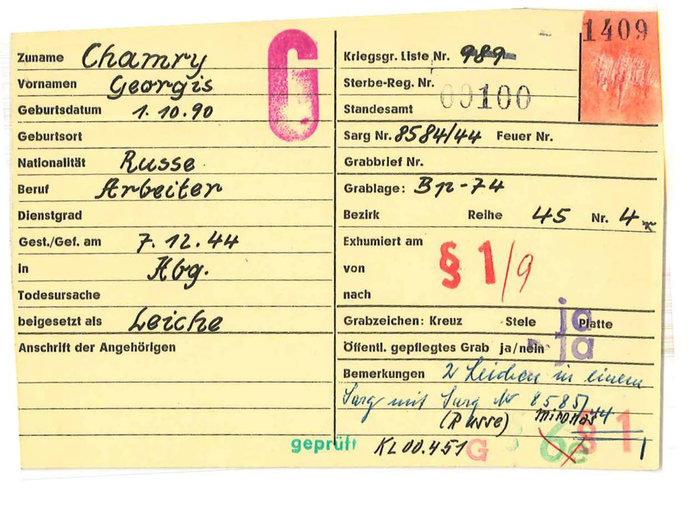 1409
Zuname Chamry
Vornamen Georgis
Geburtsdatum 1.10.90
Geburtsort
Nationalität Russe
Beruf Arbeiter
Dienstgrad
Gest./Gef. am 7.12.44
In Hbg.
Todesursache
beigesetzt als Leiche
Anschrift der Angehörigen
G
geprüft
Kriegsgr. Liste Nr. 989
Sterbe-Reg. Nr.
Standesamt 00100
Sarg Nr. 8584/44 Feuer Nr.
Grabbrief Nr.
Grablage: Bp-74
Bezirk Reihe 45 Nr. 4
Exhumiert am
von § 1/9
nach
Grabzeichen: Kreuz Stele ja Platte
Öffentl. gepflegtes Grab ja/nein ja
Bemerkungen 2 Leichen in einem
Sarg mit Sarg Nr 8585/
(Russe) 44
KL00.451 G